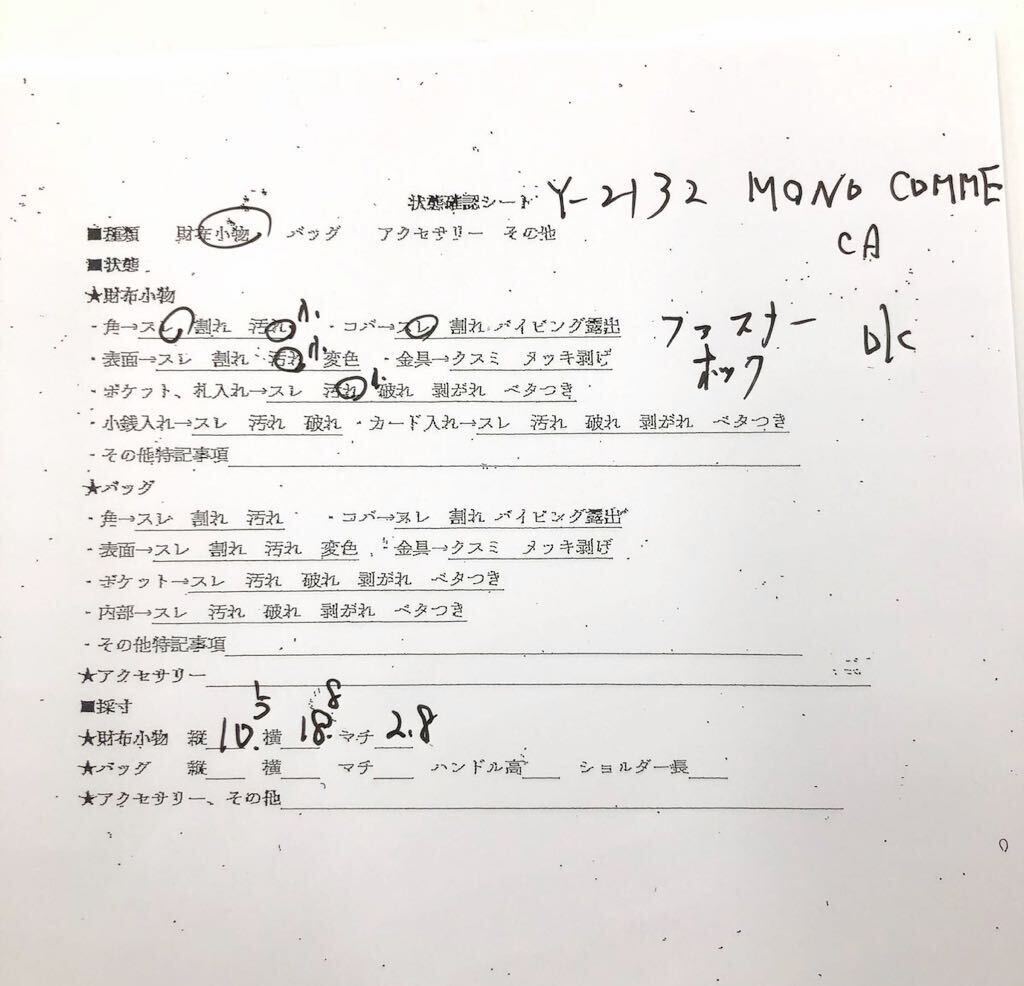 状態確認シート Y-2132 MONO COMME CA
■種類 財布小物 バッグ アクセサリー その他
■状態
★財布小物
・角→スレ 割れ 汚れ 小 ・コバ→スレ 割れ パイピング露出
ファスナー ホック
・表面→スレ 割れ 汚れ 小 変色 ・金具→クスミ メッキ剥げ
・ポケット、札入れ→スレ 汚れ 破れ 剥がれ ベタつき
・小銭入れ→スレ 汚れ 破れ ・カード入れ→スレ 汚れ 破れ 剥がれ ベタつき
・その他特記事項
★バッグ
・角→スレ 割れ 汚れ ・コバ→スレ 割れ パイピング露出
・表面→スレ 割れ 汚れ 変色 ・金具→クスミ メッキ剥げ
・ポケット→スレ 汚れ 破れ 剥がれ ベタつき
・内部→スレ 汚れ 破れ 剥がれ ベタつき
・その他特記事項
★アクセサリー
■採寸
★財布小物 縦 10.5 横 18.8 マチ 2.8
★バッグ 縦 横 マチ ハンドル高 ショルダー長
★アクセサリー、その他